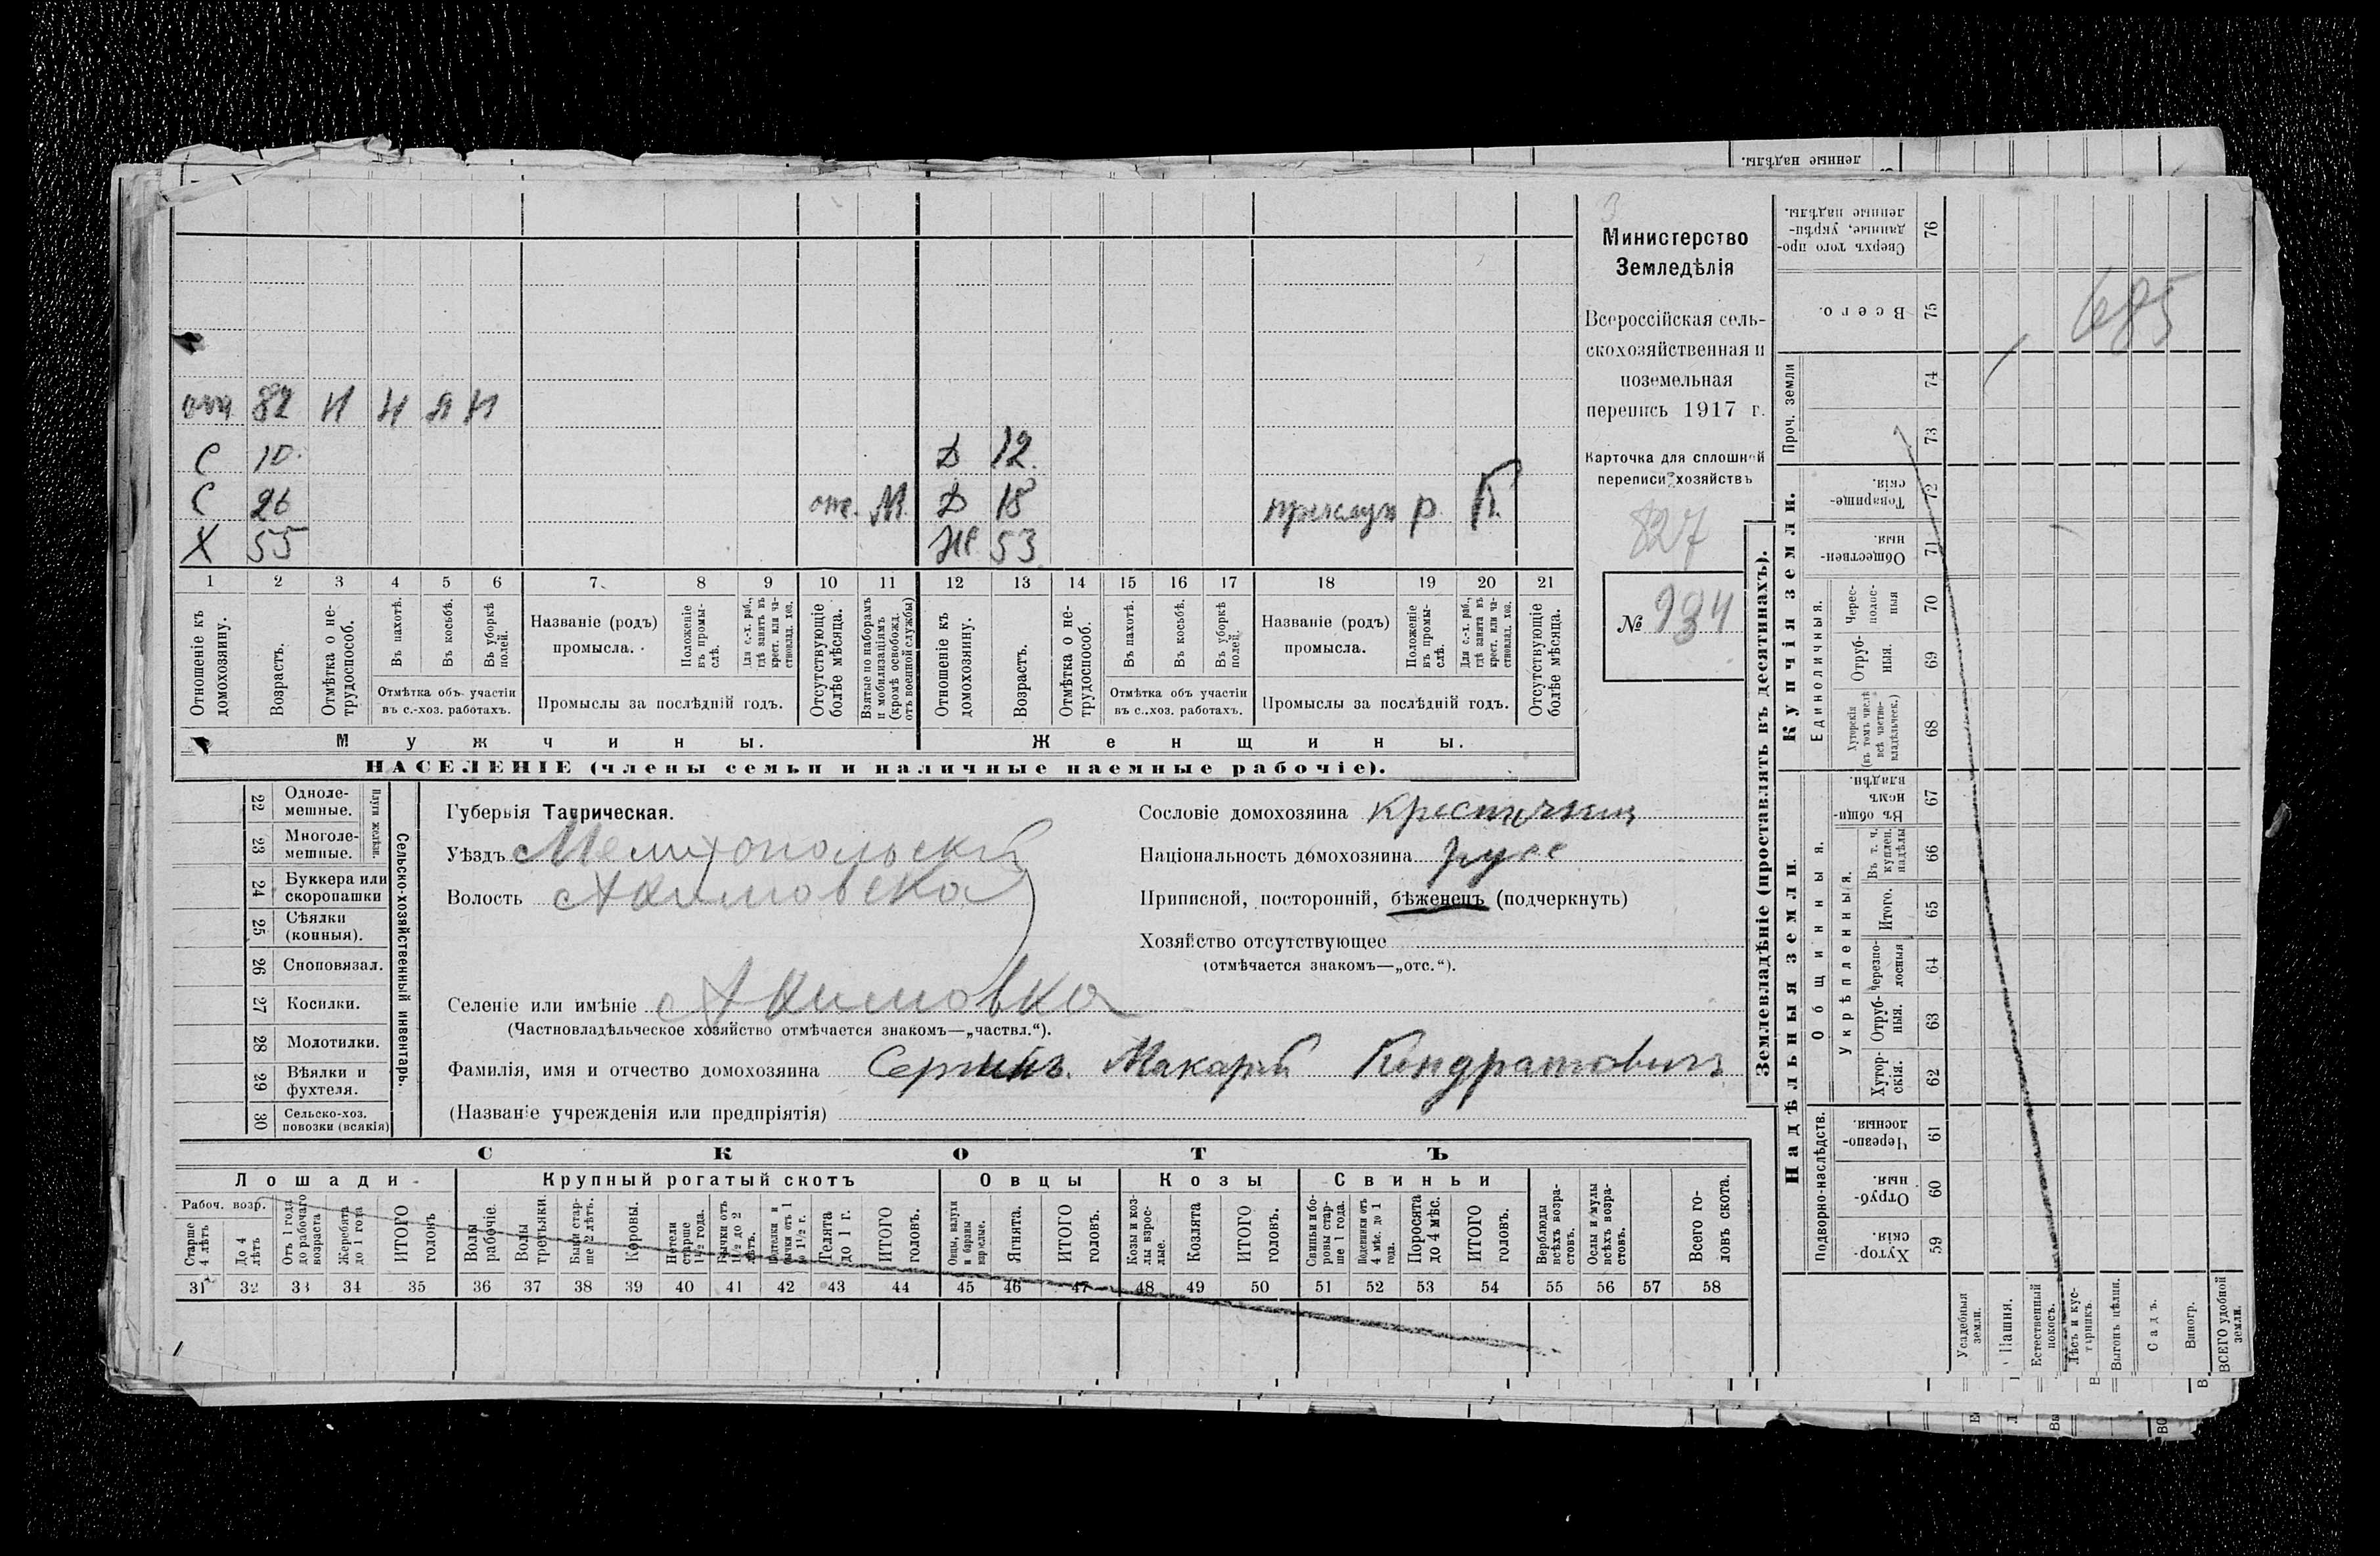 ленные надѣлы.
отц 82 Н Н Н Н
С 10. Д 12.
С 26 отс. М. Д 18 прислуга р. К.
Х 55 Ж 53
1 2 3 4 5 6 7. 8 9 10 11 12 13 14 15 16 17 18 19 20 21
Отношеніе къ домохозяину.
Возрастъ.
Отмѣтка о не-трудоспособ.
Въ пахотѣ.
Въ косьбѣ.
Въ уборкѣ полей.
Отмѣтка объ участіи въ с.-хоз. работахъ.
Названіе (родъ) промысла.
Положеніе въ промы-слѣ.
Для с.-х. раб., гдѣ занятъ въ крест. или ча-стновлад. хоз.
Промыслы за послѣдній годъ.
Отсутствующіе болѣе мѣсяца.
Взятые по наборамъ и мобилизаціямъ (кромѣ освобожд. отъ военной службы)
Отношеніе къ домохозяину.
Возрастъ.
Отмѣтка о не-трудоспособ.
Въ пахотѣ.
Въ косьбѣ.
Въ уборкѣ полей.
Отмѣтка объ участіи въ с.-хоз. работахъ.
Названіе (родъ) промысла.
Положеніе въ промы-слѣ.
Для с.-х. раб., гдѣ занята въ крест. или ча-стновлад. хоз.
Промыслы за послѣдній годъ.
Отсутствующіе болѣе мѣсяца.
Мужчины. Женщины.
НАСЕЛЕНІЕ (члены семьи и наличные наемные рабочіе).
3
Министерство
Земледѣлія
Всероссійская сель-
скохозяйственная и
поземельная
перепись 1917 г.
Карточка для сплошной
переписи хозяйствъ
827
№ 934
22 Одноле-мешные.
23 Многоле-мешные.
Плуги желѣзн.
24 Буккера или скоропашки
25 Сѣялки (конныя).
26 Сноповязал.
27 Косилки.
28 Молотилки.
29 Вѣялки и фухтеля.
30 Сельско-хоз. повозки (всякія)
Сельско-хозяйственный инвентарь.
Губернія Таврическая.
Уѣздъ Мелитопольскій
Волость Акимовская
Селеніе или имѣніе Акимовка
(Частновладѣльческое хозяйство отмѣчается знакомъ—„частвл.“).
Фамилія, имя и отчество домохозяина Макарій Кондратовичъ
(Названіе учрежденія или предпріятія)
Сословіе домохозяина крестьянин
Національность домохозяина русс
Приписной, посторонній, бѣженецъ (подчеркнуть)
Хозяйство отсутствующее
(отмѣчается знакомъ—„отс.“).
СКОТЪ
Лошади Крупный рогатый скотъ Овцы Козы Свиньи
Рабоч. возр.
Старше 4 лѣтъ
До 4 лѣтъ
Отъ 1 года до рабочаго возраста
Жеребята до 1 года
ИТОГО головъ
Волы рабочіе.
Волы третьяки.
Быки стар-ше 2 лѣтъ.
Коровы.
Нетели старше 1½ года.
Бычки отъ 1½ до 2 лѣтъ.
Телята до 1 г.
ИТОГО головъ.
Овцы, валухи и бараны взрослые.
Ягнята.
ИТОГО головъ.
Козы и коз-лы взрос-лые.
Козлята
ИТОГО головъ.
Свиньи и бо-ровы стар-ше 1 года.
Подсвинки отъ 4 мѣс. до 1 года.
Поросята до 4 мѣс.
ИТОГО головъ.
Верблюды всѣхъ возра-стовъ.
Ослы и мулы всѣхъ возра-стовъ.
Всего го-ловъ скота.
31 32 33 34 35 36 37 38 39 40 41 42 43 44 45 46 47 48 49 50 51 52 53 54 55 56 57 58
Землевладѣніе (проставлять въ десятинахъ).
Надѣльныя земли. Купчія земли. Проч. земли
Подворно-наслѣдств.
Общинныя.
Укрѣпленныя.
Единоличныя.
Сверхъ того про-данные, укрѣп-ленные надѣлы. 76
Всего. 75
74
73
Товарище-скія. 72
Обществен-ныя. 71
Черес-полос-ныя 70
Отруб-ныя. 69
Хуторскія (въ томъ числѣ всѣ частно-владѣльческ.) 68
Въ общин-номъ владѣн. 67
Въ т. ч. куплен. надѣлы 66
Итого. 65
Черезпо-лосныя 64
Отруб-ныя. 63
Хутор-скія. 62
Черезпо-лосныя. 61
Отруб-ныя. 60
Хутор-скія. 59
685
Усадебныя земли.
Пашня.
Естественный покосъ.
Лѣсъ и кус-тарникъ.
Выгонъ цѣлин.
Садъ.
Виногр.
ВСЕГО удобной земли.